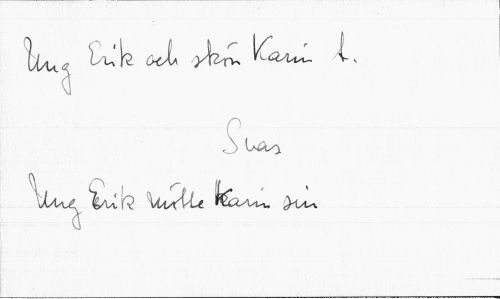 Ung Erik och skön Karin t.
Svas
Ung Erik mötte Karin sin